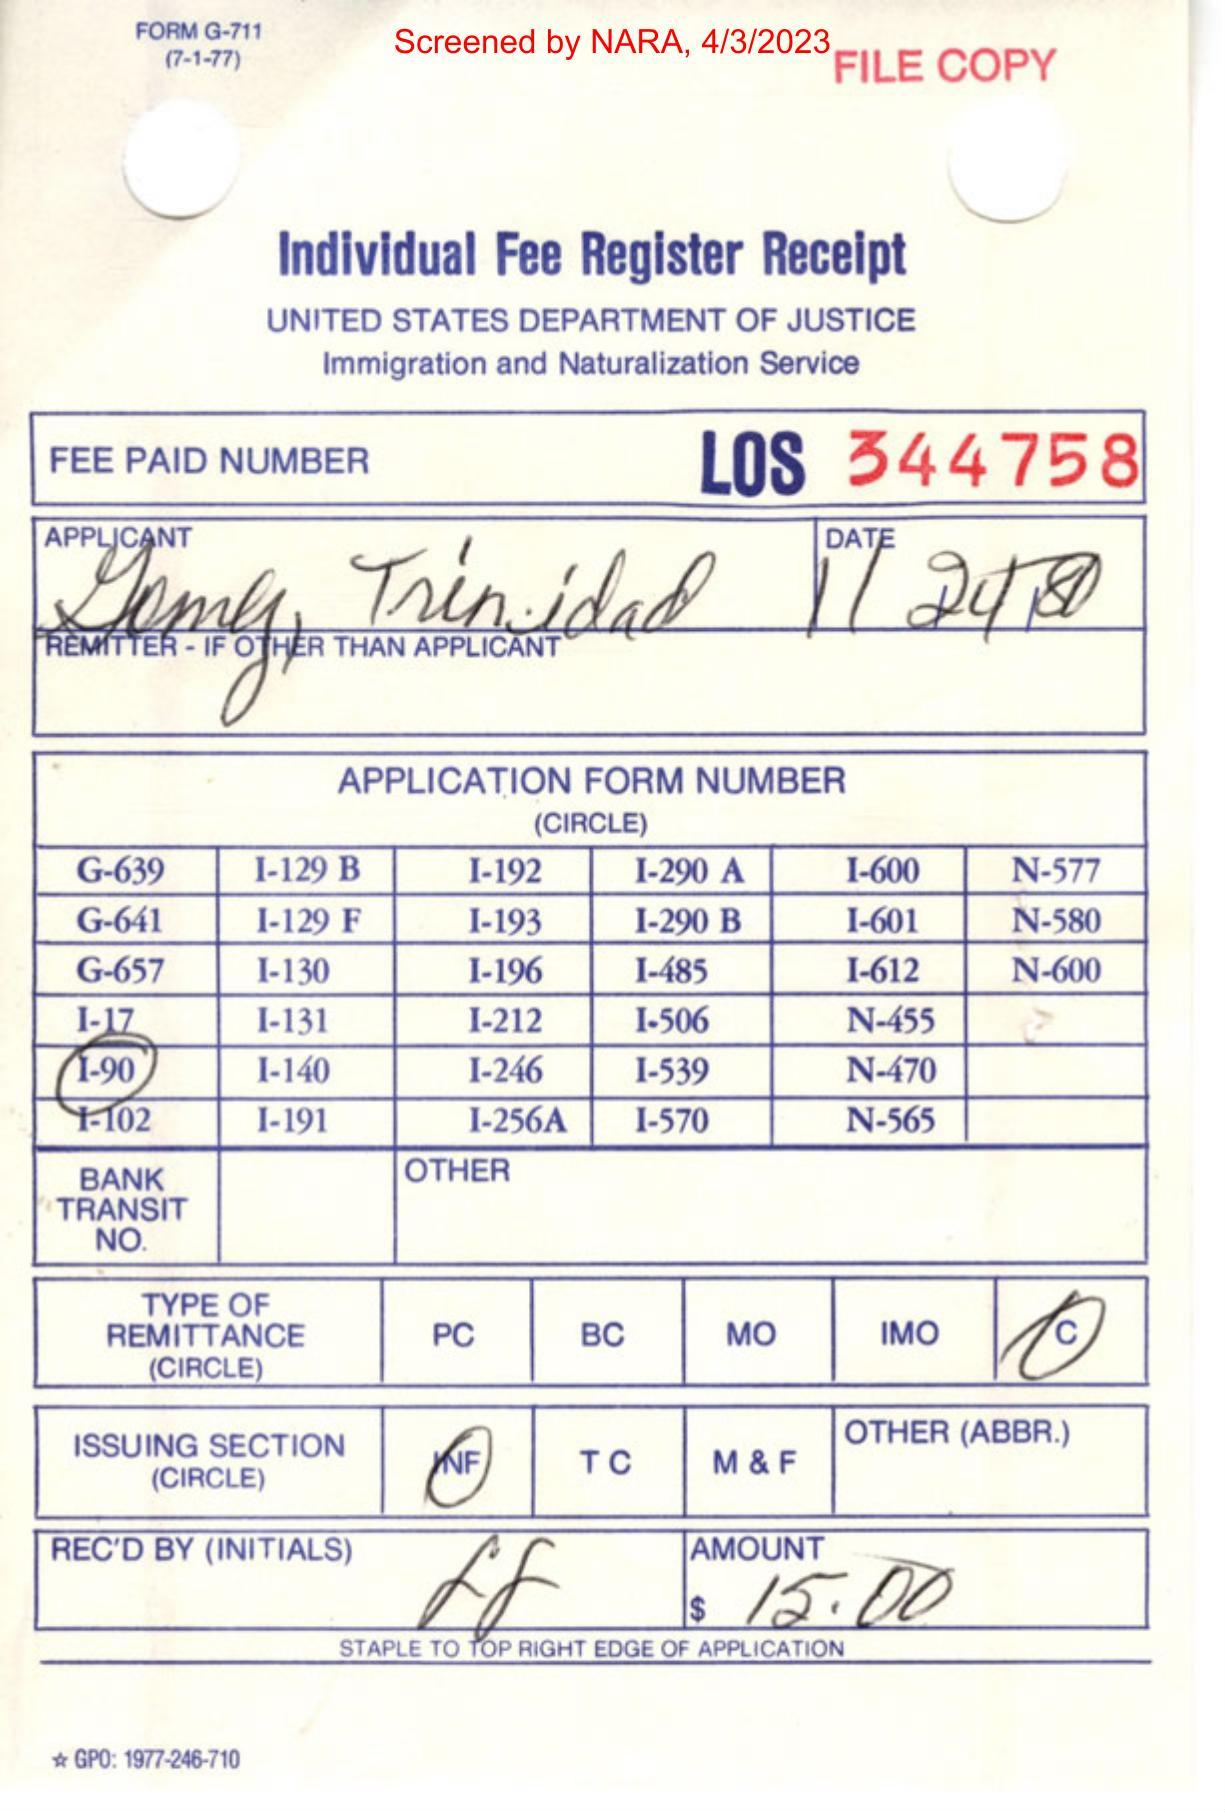 FORM G-711
(7-1-77)
Screened by NARA, 4/3/2023
FILE COPY
Individual Fee Register Receipt
UNITED STATES DEPARTMENT OF JUSTICE
Immigration and Naturalization Service
FEE PAID NUMBER LOS 344758
APPLICANT DATE
Gomez, Trinidad 11 24 80
REMITTER - IF OTHER THAN APPLICANT
APPLICATION FORM NUMBER
(CIRCLE)
G-639 I-129 B I-192 I-290 A I-600 N-577
G-641 I-129 F I-193 I-290 B I-601 N-580
G-657 I-130 I-196 I-485 I-612 N-600
I-17 I-131 I-212 I-506 N-455
I-90 I-140 I-246 I-539 N-470
I-102 I-191 I-256A I-570 N-565
BANK TRANSIT NO. OTHER
TYPE OF REMITTANCE (CIRCLE) PC BC MO IMO C
ISSUING SECTION (CIRCLE) INF T C M & F OTHER (ABBR.)
REC'D BY (INITIALS) AMOUNT
$ 15.00
STAPLE TO TOP RIGHT EDGE OF APPLICATION
☆ GPO: 1977-246-710